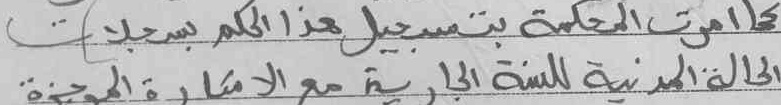 كما امرت المحكمة بتسجيل هذا الحكم بسجلات
الحالة المدنية للسنة الجارية مع الاشارة الموجزة